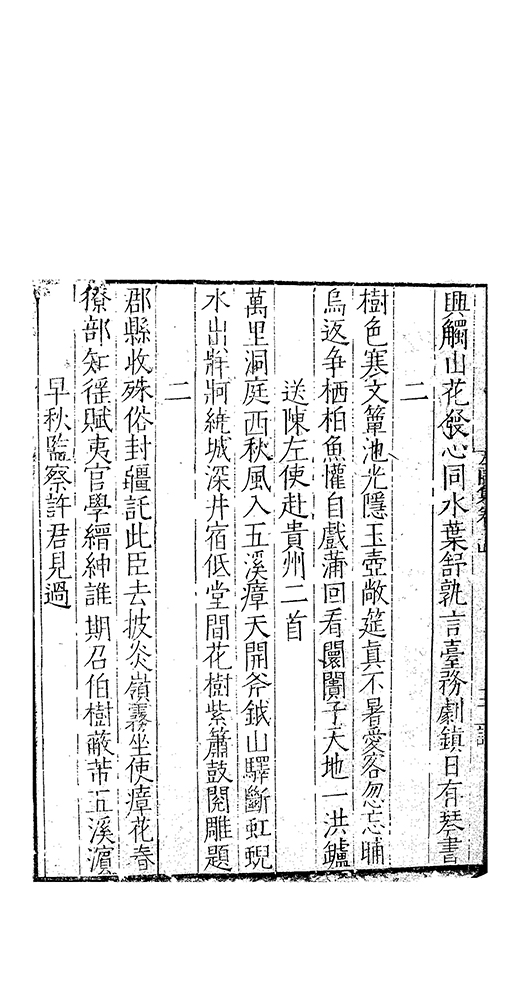 興觸山花發心同水葉舒孰言臺務劇鎮日有琴書
二
樹色寒文簟池光隱玉壺敞筵真不暑愛客忽忘晡
烏返争栖柏魚懽自戲蒲回看闤闠子天地一洪鑪
送陳左使赴貴州二首
萬里洞庭西秋風入五溪瘴天開斧鉞山驛斷虹蜺
水出牂牁繞城深井宿低堂間花樹紫簫鼓閱雕題
二
郡縣收殊俗封疆託此臣去披炎嶺霧坐使瘴花春
獠部知徭賦夷官學縉紳誰期召伯樹蔽芾五溪濵
早秋監察許君見過